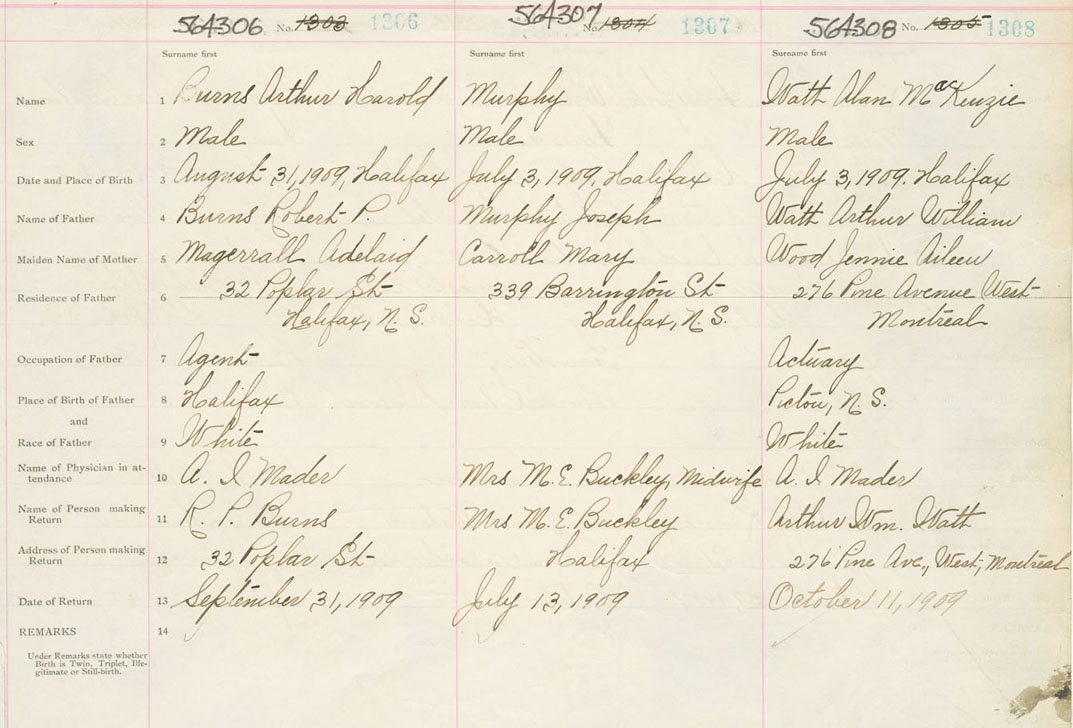 564306 No. 1303 1306 564307 No. 1304 1307 564308 No. 1305 1308
Surname first Surname first Surname first
Name 1 Burns Arthur Harold Murphy Wath Alan MacKenzie
Sex 2 Male Male Male
Date and Place of Birth 3 August 31, 1909, Halifax July 3, 1909, Halifax July 3, 1909. Halifax
Name of Father 4 Burns Robert P. Murphy Joseph Wath Arthur William
Maiden Name of Mother 5 Magerrall Adelaid Carroll Mary Wood Jennie Aileen
Residence of Father 6 32 Poplar St 339 Barrington St 276 Pine Avenue West
Halifax, N. S. Halifax, N. S. Montreal
Occupation of Father 7 Agent Actuary
Place of Birth of Father 8 Halifax Pictou, N. S.
and
Race of Father 9 White White
Name of Physician in at-
tendance 10 A. I Mader Mrs M. E. Buckley, Midwife A. I Mader
Name of Person making
Return 11 R. P. Burns Mrs M. E. Buckley Arthur Wm. Wath
Address of Person making
Return 12 32 Poplar St Halifax 276 Pine Ave., West, Montreal
Date of Return 13 September 31, 1909 July 13, 1909 October 11, 1909
REMARKS 14
Under Remarks state whether
Birth is Twin, Triplet, Ille-
gitimate or Still-birth.